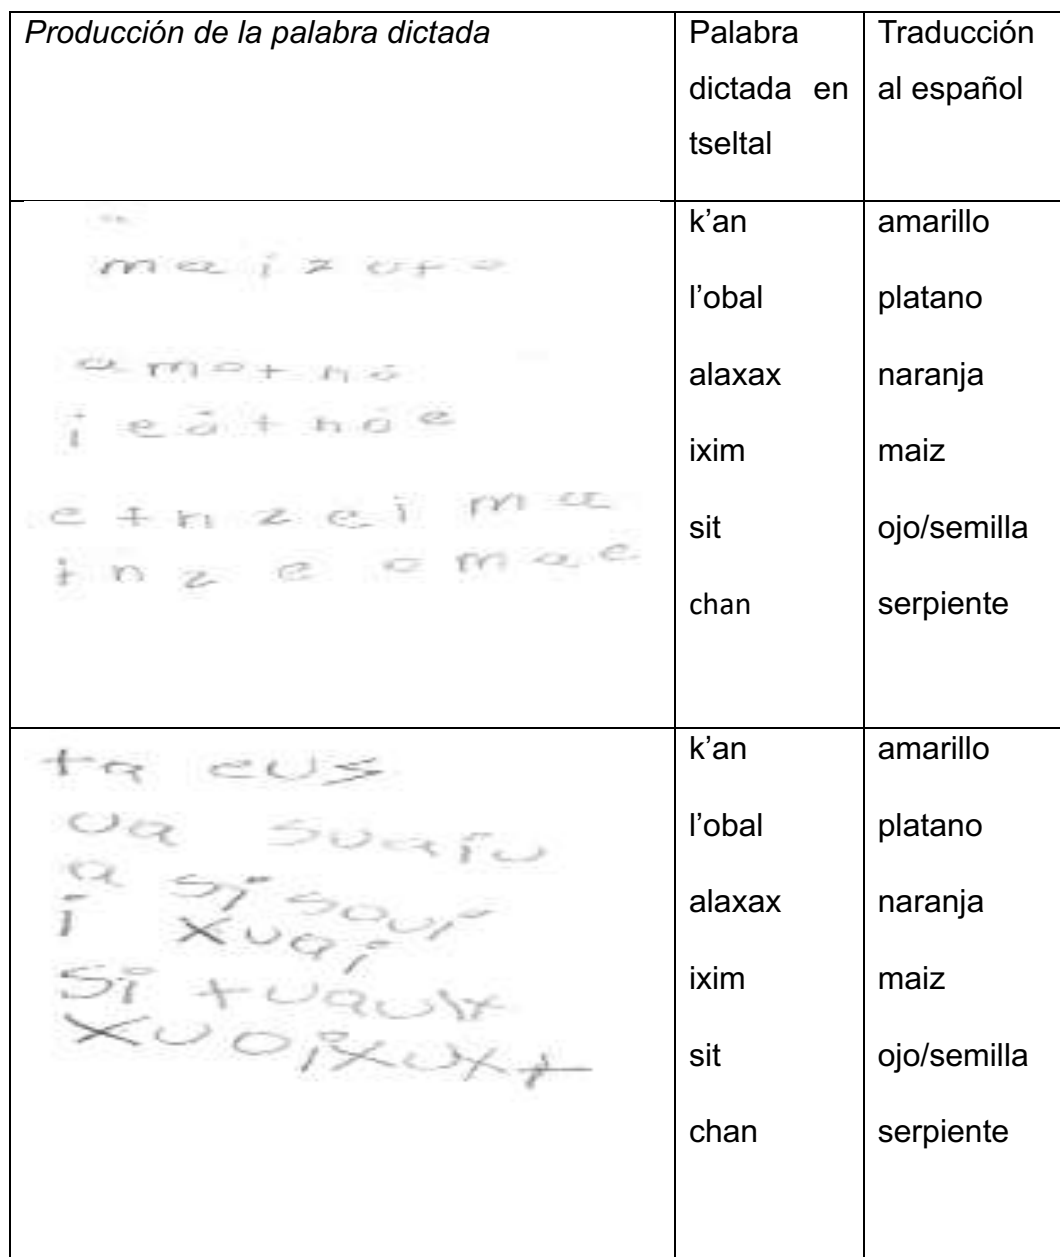 Producción de la palabra dictada
Palabra dictada en tseltal
Traducción al español
m a i z o t o
a m o t n o
i e o t n o e
e t n z e i m a
t n z e o m a e
k’an
l’obal
alaxax
ixim
sit
chan
amarillo
platano
naranja
maiz
ojo/semilla
serpiente
ta eus
ua suaiu
a si soui
i xuai
si
xuoixuxt
k’an
l’obal
alaxax
ixim
sit
chan
amarillo
platano
naranja
maiz
ojo/semilla
serpiente